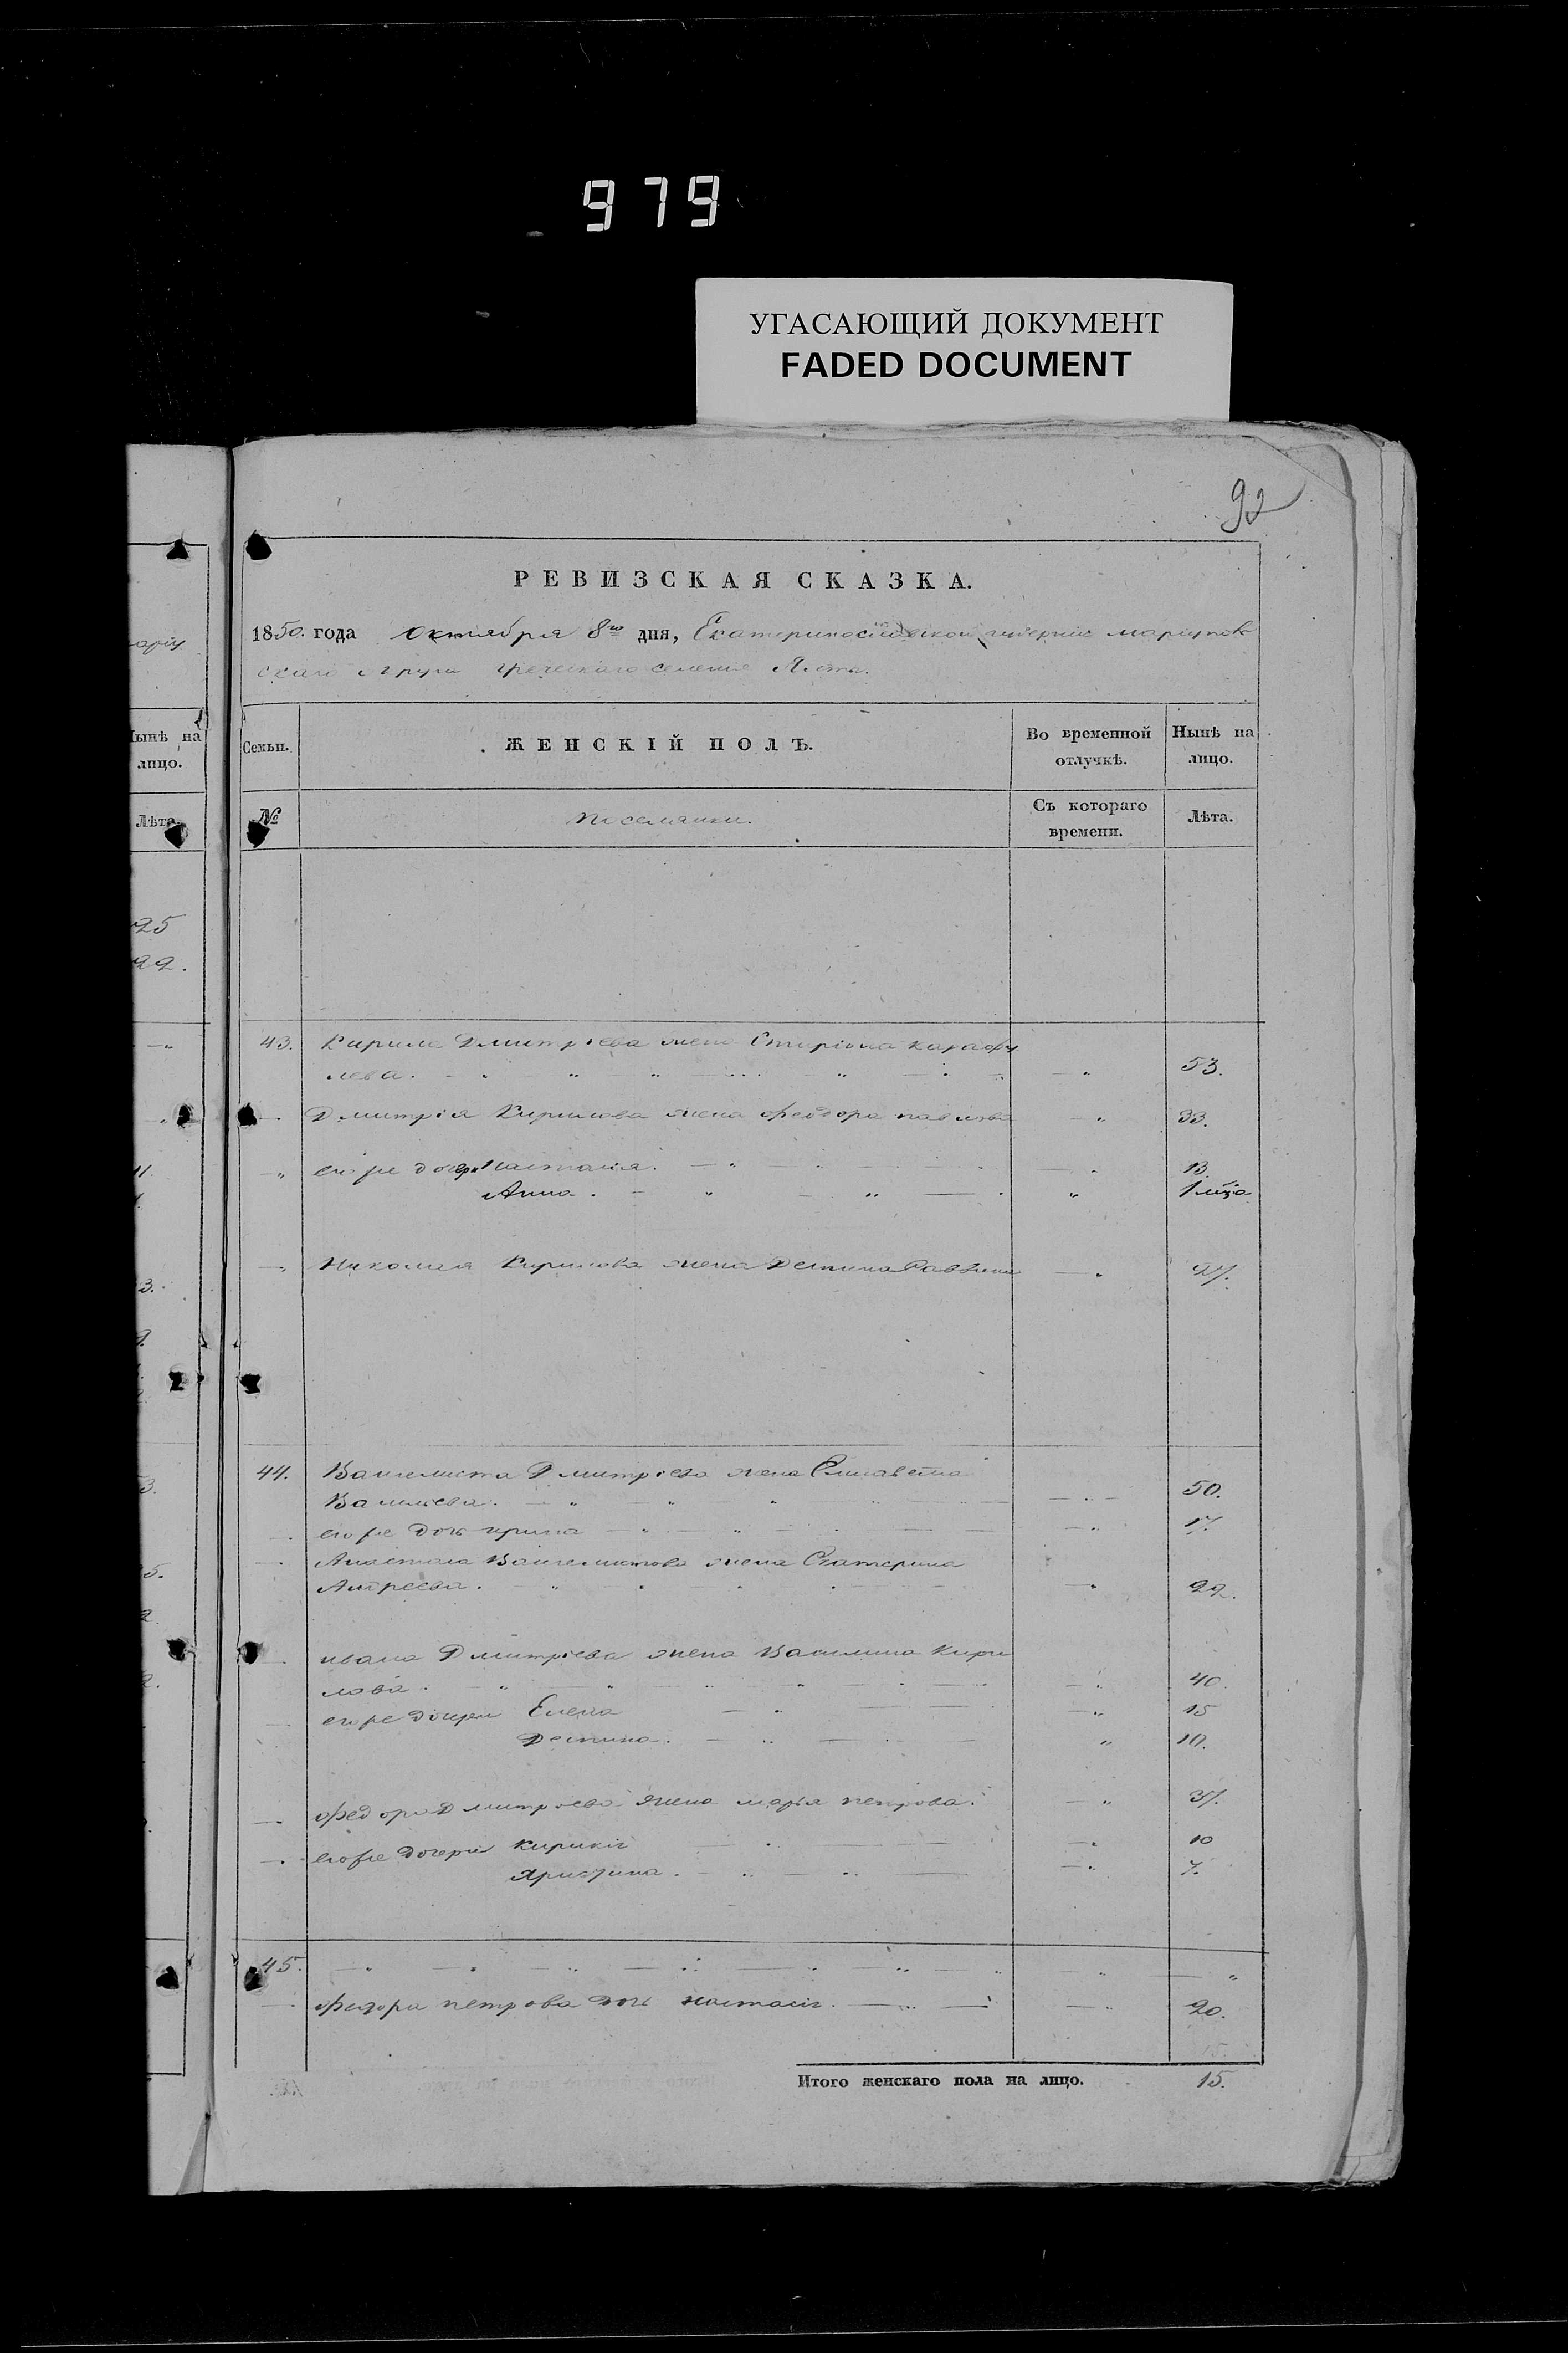 979
УГАСАЮЩИЙ ДОКУМЕНТ
FADED DOCUMENT
92
РЕВИЗСКАЯ СКАЗКА.
1850. года Октября 8го дня, Екатеринославской губернии мариупов
скаго округа греческаго селение Ялта.
Нынѣ на
лицо.
Лѣта.
25
22.
Семьи.
ЖЕНСКІЙ ПОЛЪ.
Во временной
отлучкѣ.
Нынѣ на
лицо.
№
поселянки.
Съ котораго
времени.
Лѣта.
43. Кирила Дмитріева жена Стиріона карафу
лева. 53.
Дмитрія Кирилова жена федора павлова 33.
его же дочери Настасія. 13
Анна. 1 мѣс
Николая Кирилова жена Деспина Саввина 27.
44. Вангелиста Дмитріева жена Елисавета
Васильева. 50.
его же дочь ирина 17.
Анастаса Вангелистова жена Екатерина
Андреева. 22.
ивана Дмитріева жена Василина Кири
лова. 40.
его же дочери Елена 15
Деспина. 10.
федора Дмитріева жена марья петрова. 37.
его же дочери Кирикія 10
Христина. 7.
45.
федора петрова дочь настасія. 20.
Итого женскаго пола на лицо. 15.